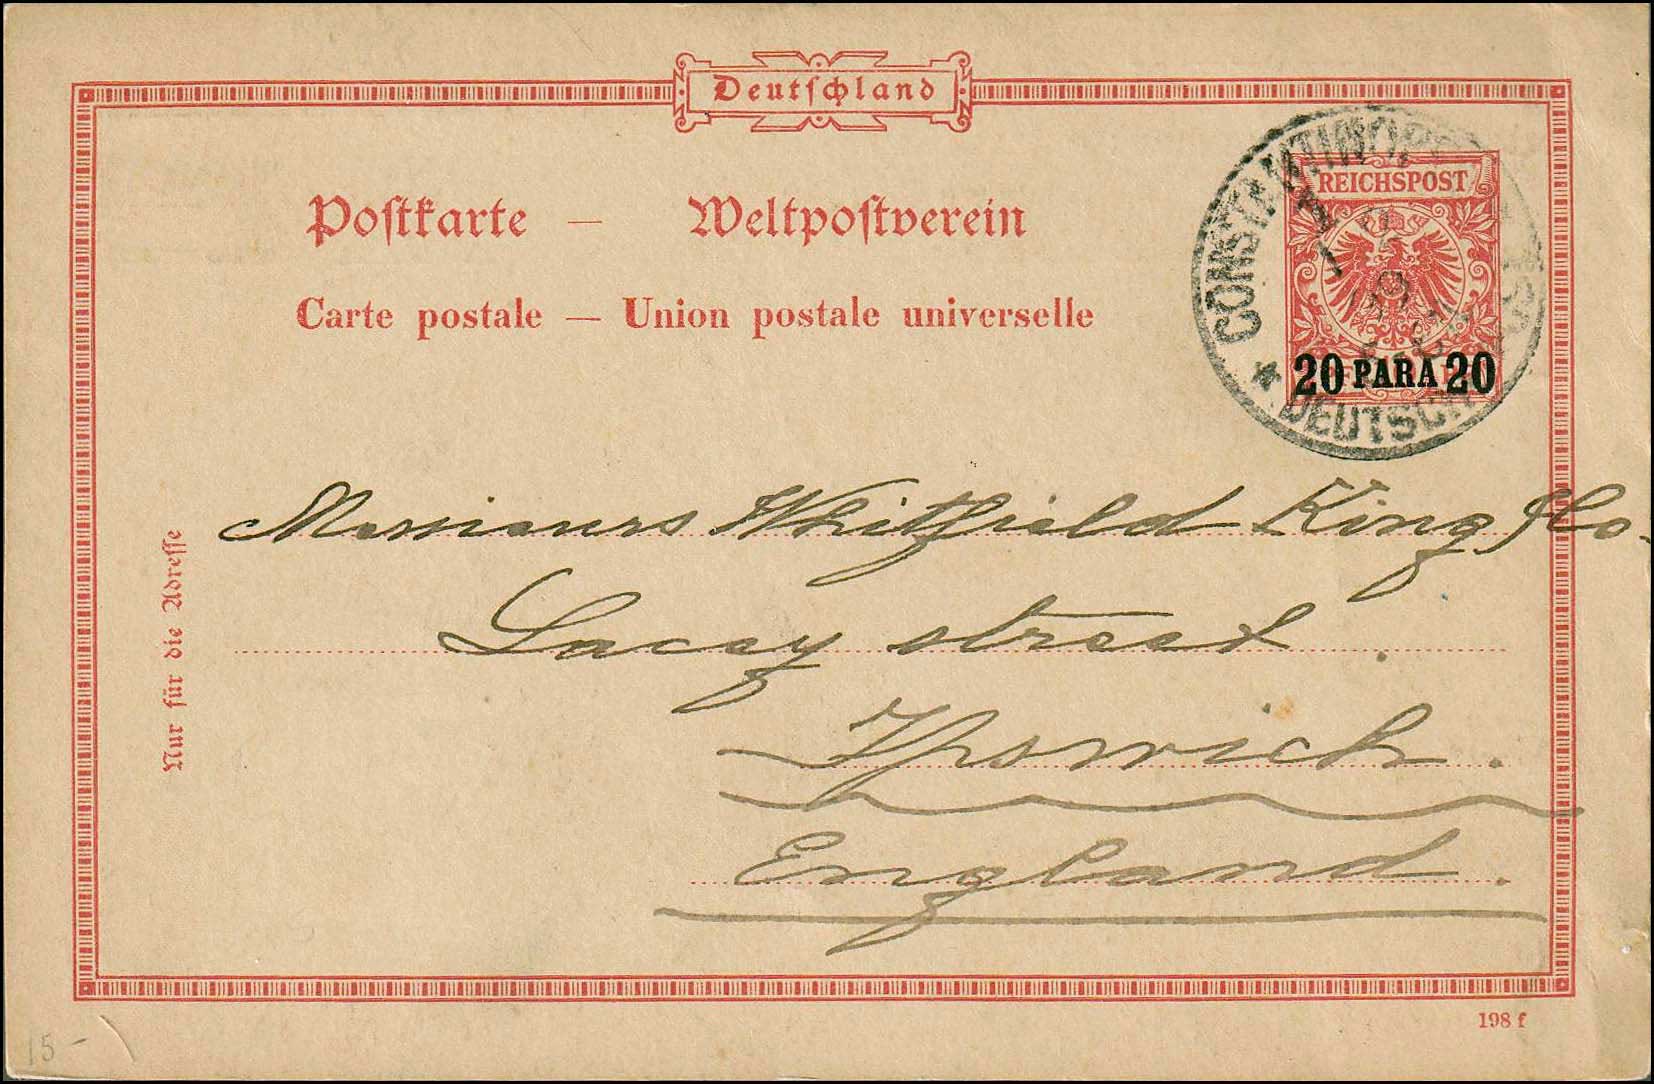 Deutschland
Postkarte — Weltpostverein
Carte postale — Union postale universelle
REICHSPOST
20 PARA 20
CONSTANTINOPEL
* DEUTSCHE
Messieurs Whitfield King & Co.
Lacey street.
Ipswich.
England.
Nur für die Adresse
198 f
15 -